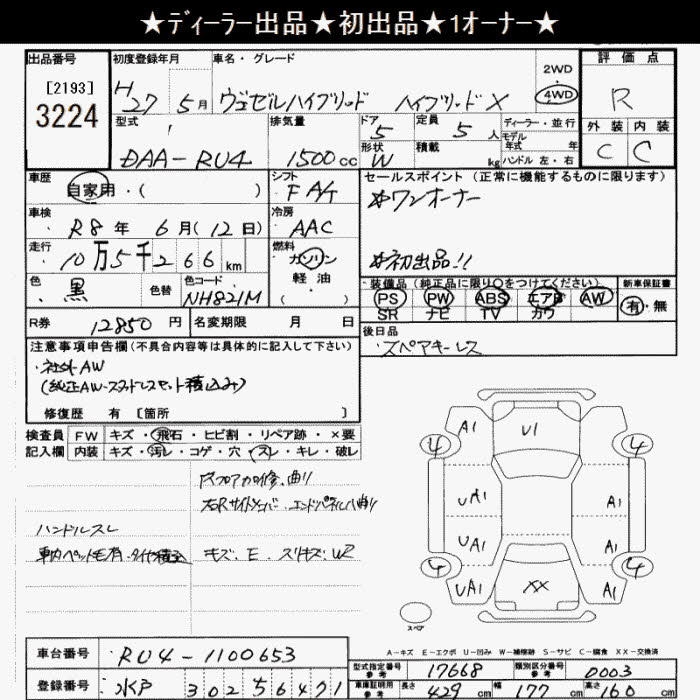 ★ディーラー出品★初出品★1オーナー★
出品番号 初度登録年月 車名・グレード 評価点
[2193] 3224
H27 5月 ヴェゼルハイブリッド ハイブリッドX 2WD 4WD R
型式 排気量 ドア 5 定員 5人 ディーラー・並行 外装 内装
モデル年式 年式
DAA-RU4 1500cc 形状 W 積載 kg ハンドル 左・右 C C
車歴 シフト セールスポイント(正常に機能するものに限ります)
自家用・( ) FAT ☆ワンオーナー
車検 冷房
R8年 6月(12日) AAC
走行 燃料
10万5千266km ガソリン ☆初出品!!
軽・油
( )
色 色替 色コード 装備品(純正品に限り○をつけてください) 新車保証書
黒 NH821M PS PW ABS エアB AW 有・無
SR ナビ TV カワ
R券 12850円 名変期限 月 日 後日品
スペアキーレス
注意事項申告欄(不具合内容等は具体的に記入して下さい)
・社外AW
(純正AW・スタッドレスセット積込み)
修復歴 有 [箇所 ]
検査員 FW キズ・飛石・ヒビ割・リペア跡・×要
記入欄 内装 キズ・汚レ・コゲ・穴・スレ・キレ・破レ
右Rサイドメンバー・エンドパネル曲り
ハンドルスレ
車内ペット毛有・タイヤ積込 キズ・E・スリキズ・W2
A1 U1
4 4
UA1 A1
UA1 A1
4 4
UA1 XX A1
スペア
A-キズ E-エクボ U-凹み W-補修跡 S-サビ C-腐食 XX-交換済
車台番号 RU4-1100653
型式指定番号 参考 17668 類別区分番号 参考 0003
登録番号 水戸 302 5 6421
車庫証明用 参考 長さ 429 幅 177 高さ 160